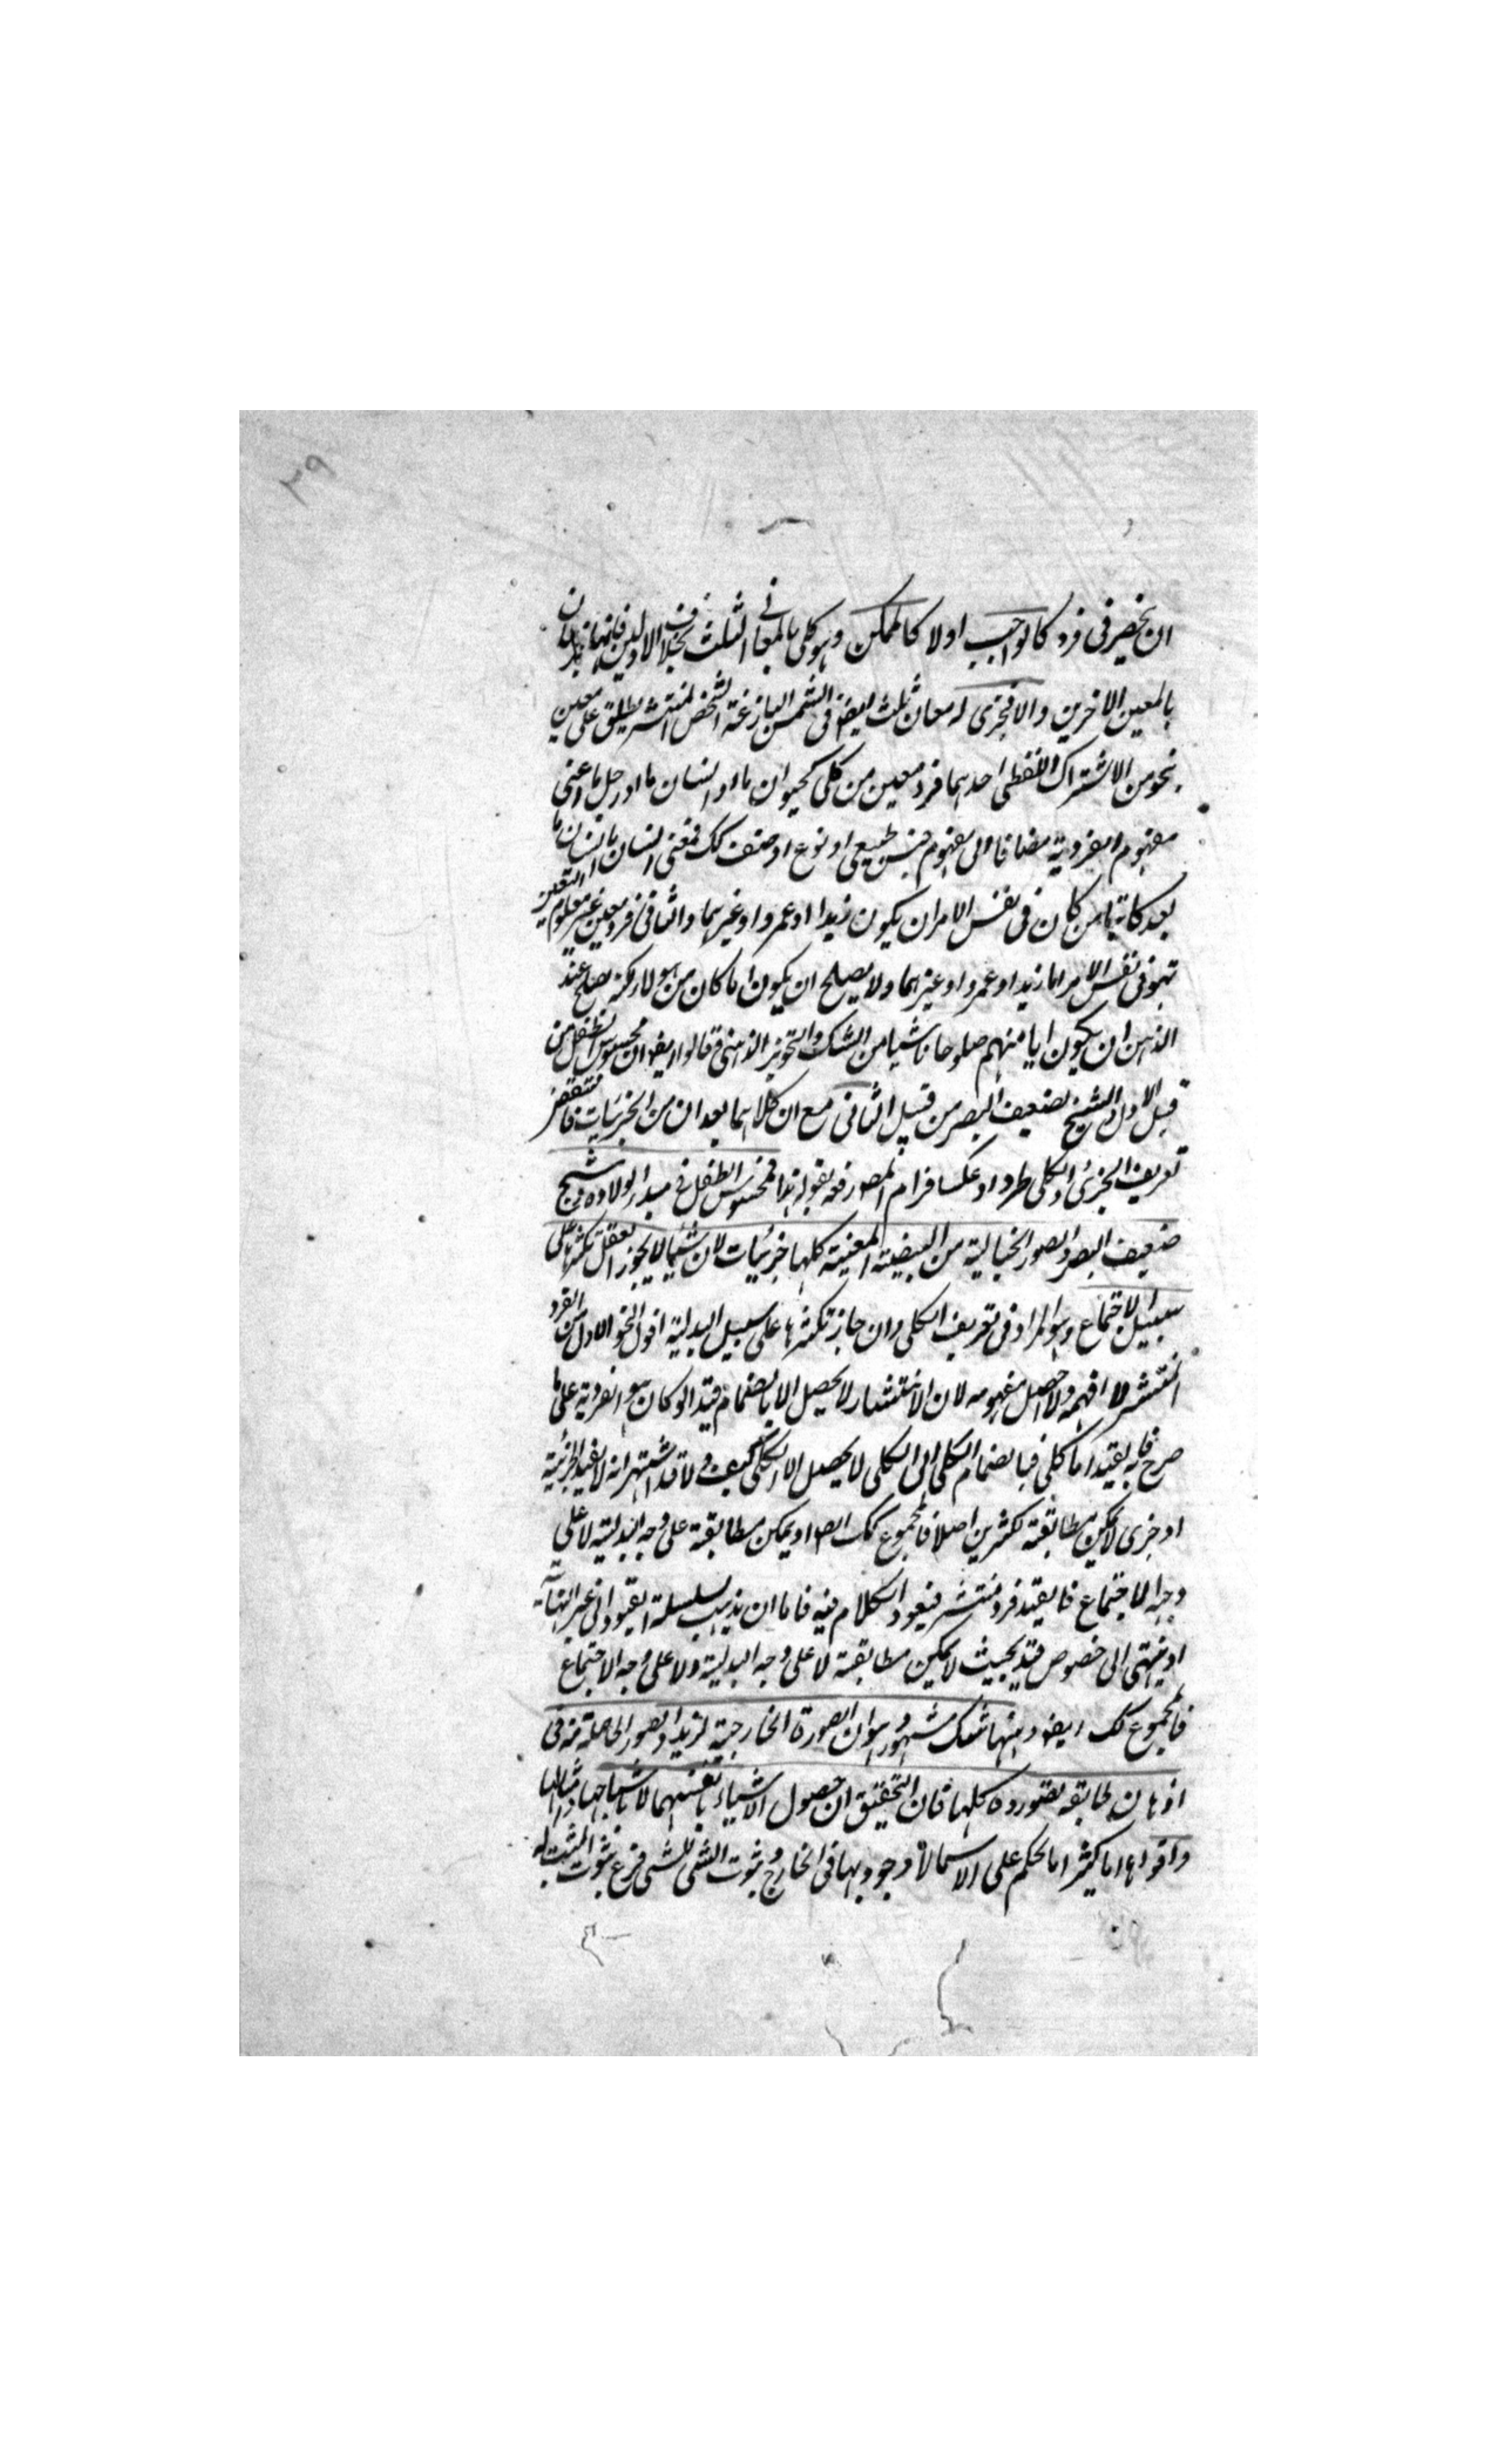 ٣٩
ان ينحصر فى فرد كالواجب اولا كالممكن وهو كلى بالمعانى الثلث بخلاف الاولين فانهما
بالمعنيين الاخرين والا فجزى له معان ثلث ايضو فى الشمس البازغة الشخص المنتشر يطلق على معنيين
بنحو من الاشتراك اللفظى احدهما فرد معين من كلى كحيوان ما او انسان ما او رجل ما اعنى
مفهوم الفردية مضافا الى مفهوم جنس طبيعى او نوع او صنف كك فمعنى انسان ما انسان ما
بعد كائنا من كان فى نفس الامر ان يكون زيدا او عمروا او غيرهما والثانى فرد معين غير معلوم التعين
فهو فى نفس الامر اما زيد او عمرو او غيرهما ولا يصلح ان يكون اما كان من هو لا ولكنه يصلح عند
الذهن ان يكون ايا منهم صلوحا ناشيا من الشك والتجويز الذهنى قالوا ايضو ان محسوس الطفل من
قبيل الاول والشيخ لضعيف البصر من قبيل الثانى مع ان كلاهما يعدان من الجزئيات فانتقض
تعريف الجزئى والكلى طردا وعكسا فرام المصور فعه بقوله هذا فمحسوس الطفل فى مبدأ الولادة وشبح
ضعيف البصر والصور الخيالية من البيضة المعينة كلها جزئيات لان شيئا لا يجوز العقل تكثرها على
سبيل الاجتماع وهو المراد فى تعريف الكلى وان جاز تكثرها على سبيل البدلية اقول النحو الاول من الفرد
المنتشر لا افهمه ولا احصل مفهومه لان الانتشار لا يحصل الا بانضمام قيد الو كان هو الفردية على ما
صرح به فالقيد اما كلى فبانضمام الكلى الى الكلى لا يحصل الا الكلى كيف ولا قد اشتهر انه لا يفيد الجزئية
او جزى لا يمكن مطابقته لكثرين اصلا فالمجموع كك ايضو او يمكن مطابقته على وجه البدلية لا على
وجه الاجتماع فالقيد فرد منتشر فيعود الكلام فيه فاما ان يذهب سلسلة القيود الى غير النهاية
او ينتهى الى خصوص قيد بحيث لا يمكن مطابقته لا على وجه البدلية ولا على وجه الاجتماع
فالمجموع كك ايضو وههنا شك مشهور وهو ان الصورة الخارجية لزيد والصور الحاصلة منه فى
اذهان طايفة تصوروه كلها فان التحقيق ان حصول الاشياء بانفسها لا باشباحها وامثالها
واقواها اما كثيرا ما نحكم على الاسما لا وجود بها فى الخارج وثبوت الشى للشى فرع ثبوت المثبت له